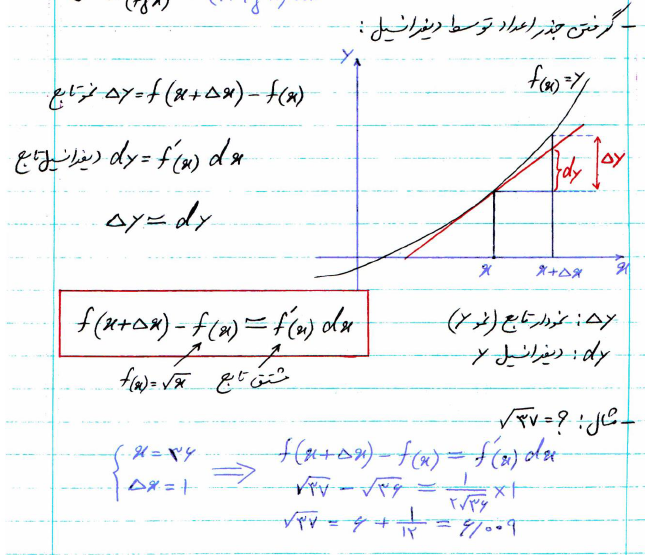 - گرفتن جذر اعداد توسط دیفرانسیل :
نمو تابع Δy = f(x+Δx) - f(x)
دیفرانسیل تابع dy = f′(x) dx
Δy ≃ dy
y
f(x) = y
dy
Δy
x
x+Δx
x
f(x+Δx) - f(x) ≃ f′(x) dx
f(x) = √x
مشتق تابع
Δy : نمودار تابع (نمو y)
dy : دیفرانسیل y
- مثال : √۳۷ = ?
{ x = ۳۶
Δx = ۱
⇒ f(x+Δx) - f(x) ≃ f′(x) dx
√۳۷ - √۳۶ ≃ ۱/۲√۳۶ × ۱
√۳۷ = ۶ + ۱/۱۲ = ۶/۰۰۹